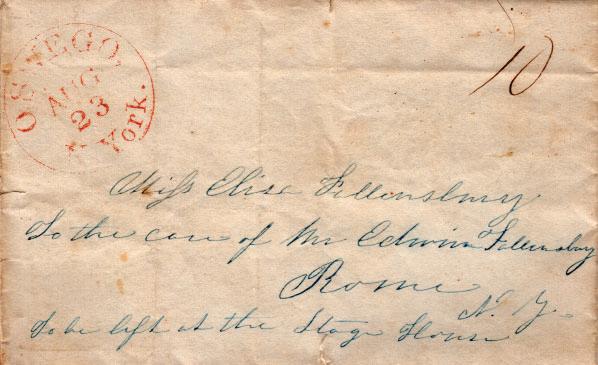 OSWEGO
AUG
23
York.
10
Miss Elisa Fellensbury
To the care of Mr Edwin Fellensbury
Rome
N. Y.
To be left at the Stage House